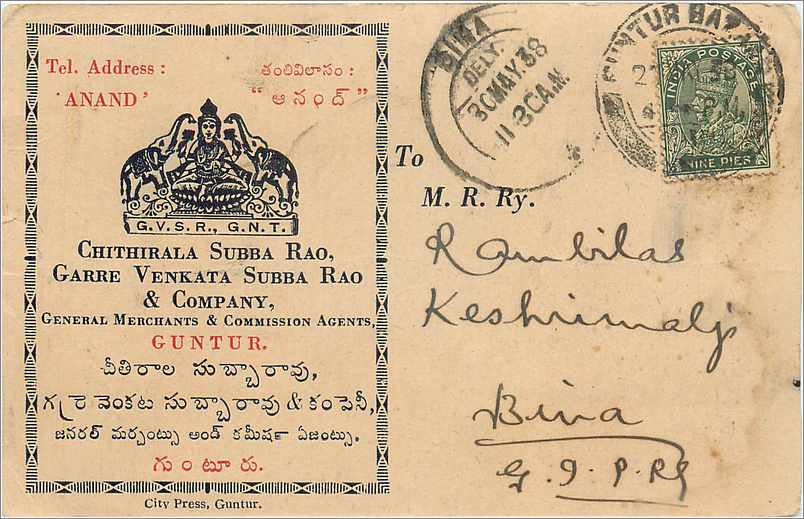 Tel. Address :
'ANAND'
తంతివిలాసం :
“ ఆనంద్ ”
G.V.S.R., G.N.T.
CHITHIRALA SUBBA RAO,
GARRE VENKATA SUBBA RAO
& COMPANY,
GENERAL MERCHANTS & COMMISSION AGENTS,
GUNTUR.
చితిరాల సుబ్బారావు,
గర్రె వెంకట సుబ్బారావు & కంపెనీ,
జనరల్ మర్చంట్సు అండ్ కమీషన్ ఏజంట్సు.
గుంటూరు.
City Press, Guntur.
BINA
DELY.
30 MAY. 38
11-30 A.M.
GUNTUR
38
P.M.
INDIA POSTAGE
NINE PIES
To
M. R. Ry.
Rambilas
Keshrimalji
Bina
G. I. P. Ry